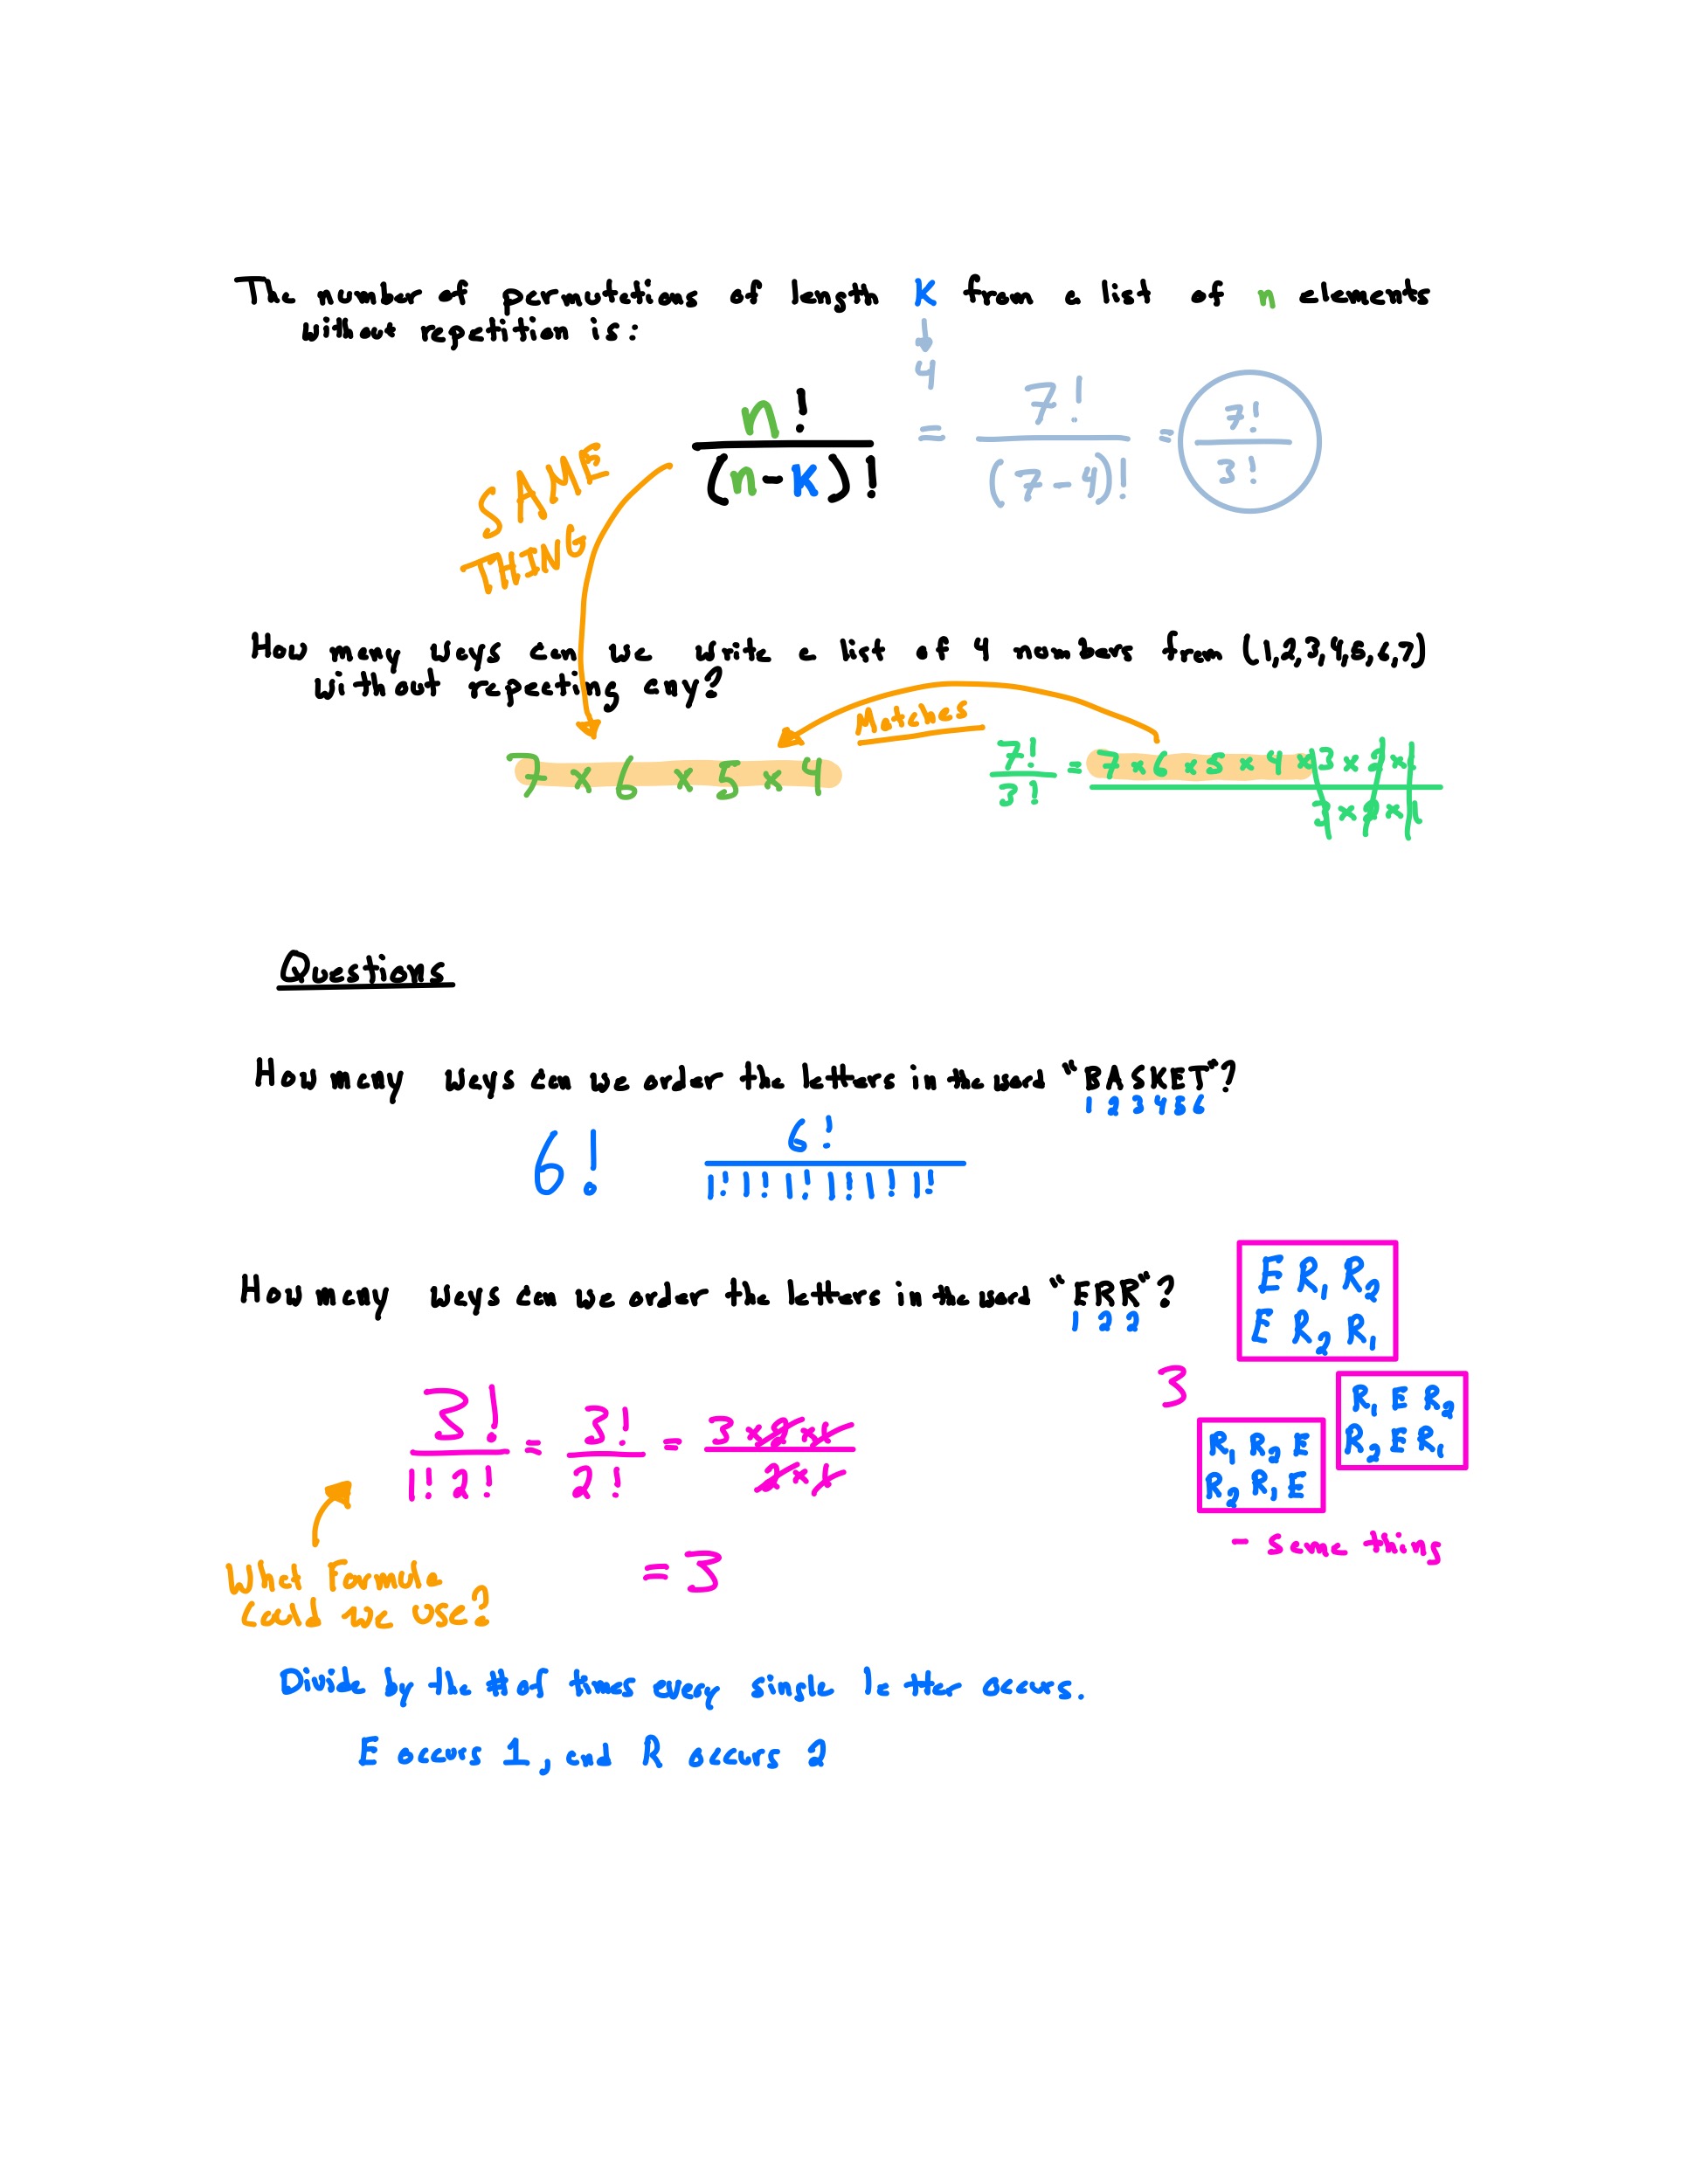 The number of permutations of length K from a list of n elements
without repetition is:
4
n! / (n-K)! = 7! / (7-4)! = 7! / 3!
SAME
THING
How many ways can we write a list of 4 numbers from (1,2,3,4,5,6,7)
without repeating any?
Matches
7 x 6 x 5 x 4
7! / 3! = 7 x 6 x 5 x 4 x 3 x 2 x 1 / 3 x 2 x 1
Questions
How many ways can we order the letters in the word "BASKET"?
1 2 3 4 5 6
6!
6! / 1! 1! 1! 1! 1! 1!
How many ways can we order the letters in the word "ERR"?
1 2 2
E R1 R2
E R2 R1
3
R1 E R2
R2 E R1
R1 R2 E
R2 R1 E
- same thing
3! / 1! 2! = 3! / 2! = 3 x 2 x 1 / 2 x 1
= 3
What Formula
could we use?
Divide by the # of times every single letter occurs.
E occurs 1, and R occurs 2